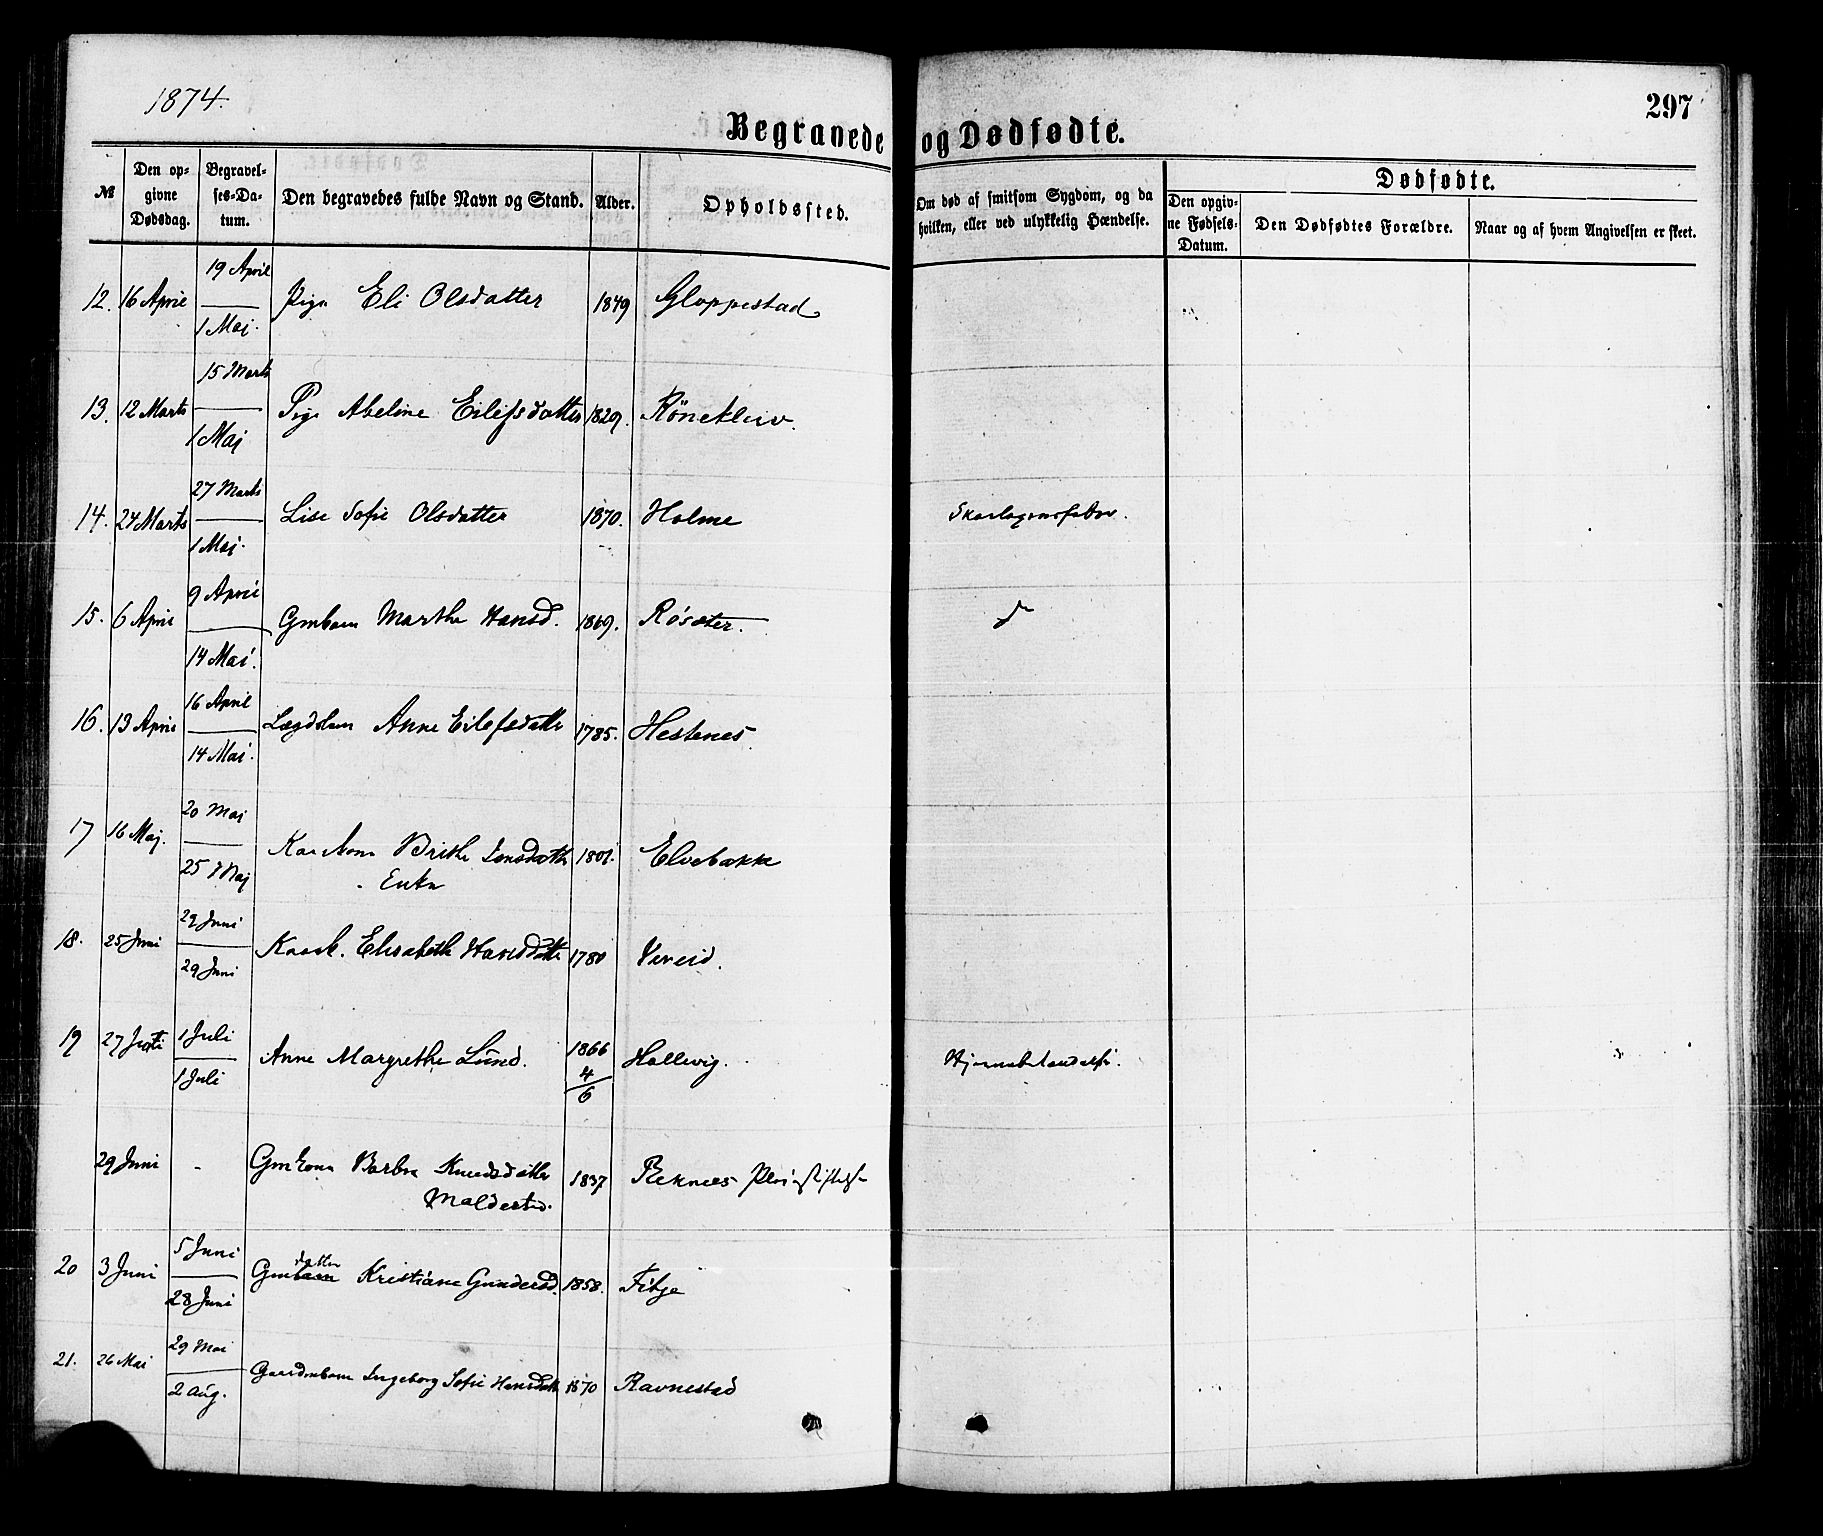 1874.
297
Begravede og Dødfødte.
№
Den op-
givne
Dødsdag.
Begravel-
ses-Da-
tum.
Den begravedes fulde Navn og Stand.
Alder.
Opholdssted.
Om død af smitsom Sygdom, og da
hvilken, eller ved ulykkelig Hændelse.
Dødfødte.
Den opgiv-
ne Fødsels-
Datum.
Den Dødfødtes Forældre.
Naar og af hvem Angivelsen er skeet.
19 April
12. 16 April Pige Eli Olsdatter 1849 Gloppestad
1 Mai.
15 Marts
13. 12 Marts Pige Abeline Eilefsdatter 1829. Rönekleiv.
1 Maj
27 Marts
14. 24 Marts Lise Sofie Olsdatter 1870. Holme Skarlagensfeber.
1 Mai.
9 April
15. 6 April Gmbarn Marthe Hansd. 1869. Røsæter. do
14 Mai.
16 April
16. 13 April Lægdslem Anne Eilefsdatte 1785. Hestenes.
14 Mai.
20 Mai
17 16 Maj. Brithe Jensdatter 1801. Elvebakke
25 Maj Enke
29 Juni
18. 25 Juni Elisabeth Hansdatte 1780
29 Juni
1 Juli
19 27 Anne Margrethe Lund. 1866 4/6 Hallevig.
1 Juli
29 Juni - Gmkone Barbra Knudsdatter 1837 Reknæs
Maldestad.
5 Juni
datter
20 3 Juni Gmbarn Kristiane Gundersd. 1858. Fitje
28 Juni
29 Mai
21. 26 Mai Ingeborg Sofie Hansdatt 1870 Ravnestad
2 Aug.